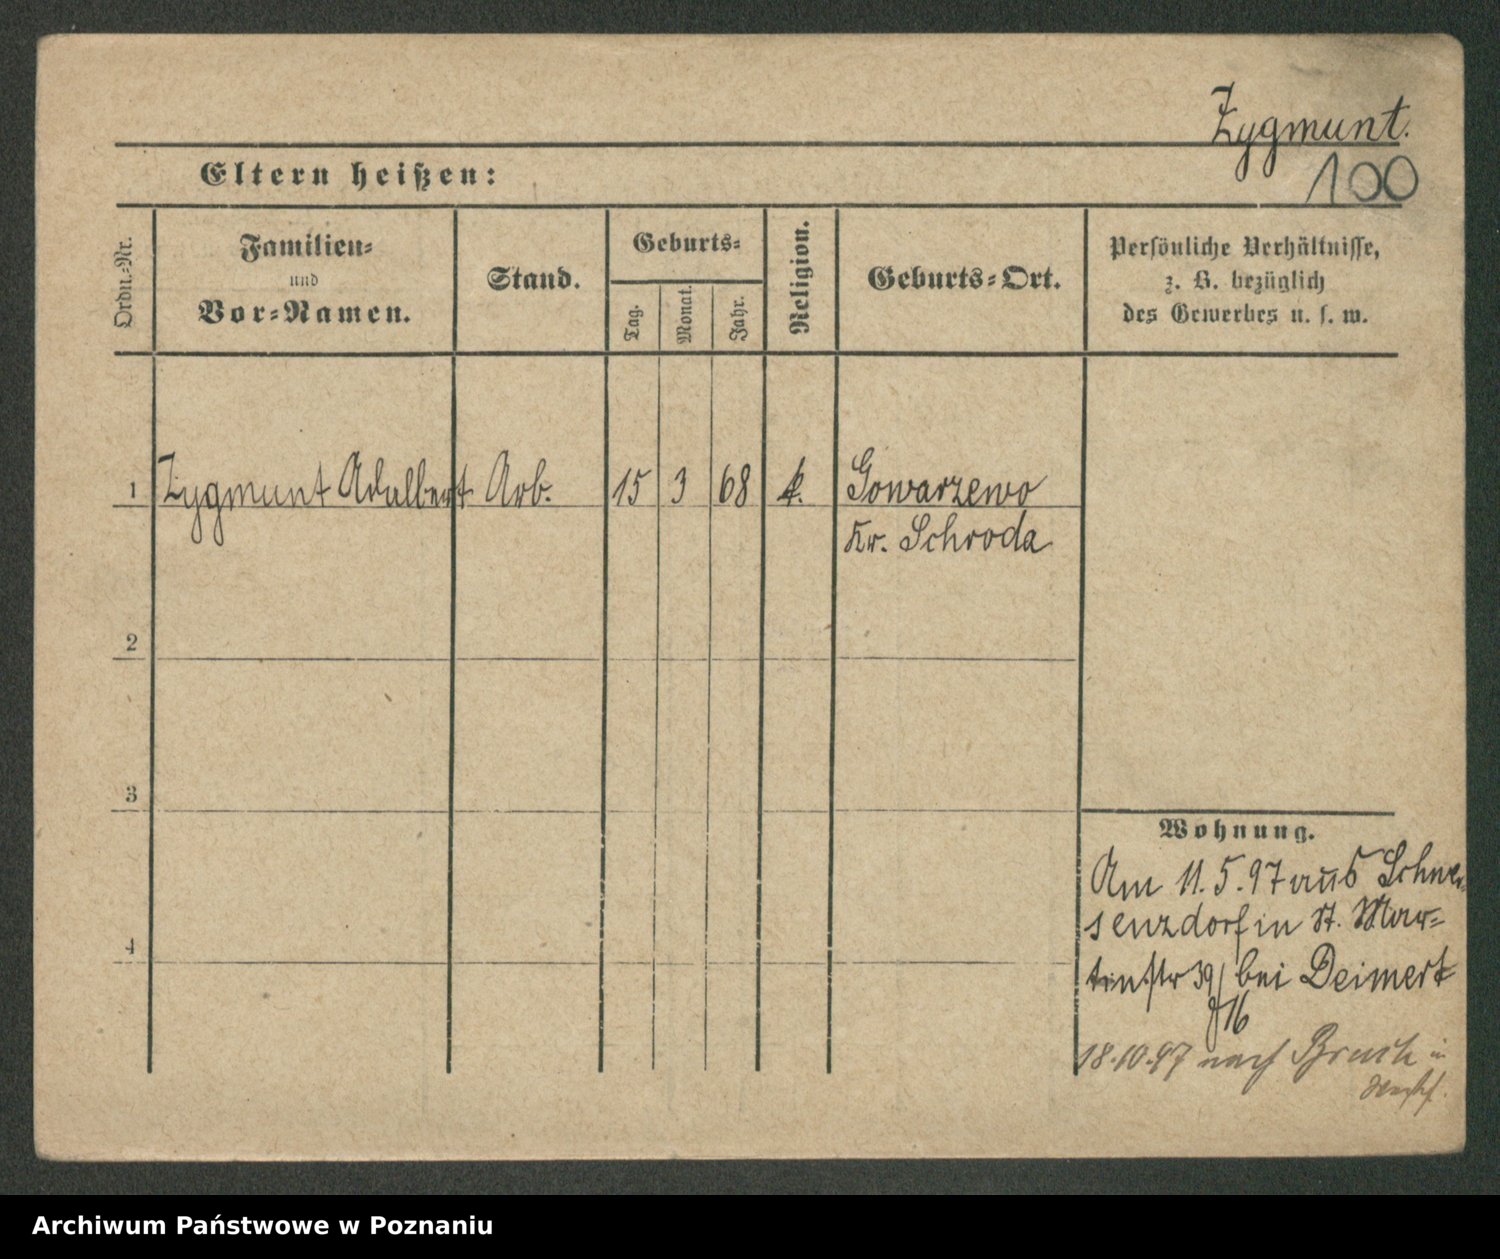 Zygmunt.
100
Eltern heißen:
Ordn.-Nr.
Familien-
und
Vor-Namen.
Stand.
Geburts-
Tag.
Monat.
Jahr.
Religion.
Geburts-Ort.
Persönliche Verhältnisse,
z. B. bezüglich
des Gewerbes u. s. w.
1 Zygmunt Adalbert Arb. 15 3 68 k. Gowarzewo
Kr. Schroda
2
3
4
Wohnung.
Am 11.5.97 aus Schwer-
senzdorf in St. Mar-
tinstr 39 bei Deimert
16
18.10.97 nach Bruch in
Archiwum Państwowe w Poznaniu